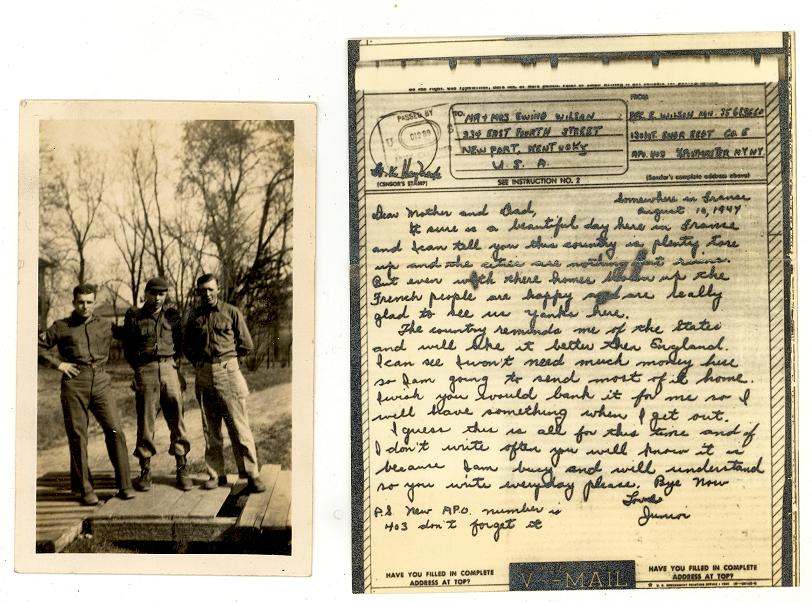 PASSED BY
(CENSOR'S STAMP)
TO:
MR & MRS EWING WILSON
934 EAST FOURTH STREET
NEWPORT, KENTUCKY
U. S. A.
SEE INSTRUCTION NO. 2
FROM
E. WILSON
ENGR CO. E
APO 403 N.Y.
(Sender's complete address above)
Somewhere in France
August 10, 1944
Dear Mother and Dad,
It sure is a beautiful day here in France
and I can tell you this country is plenty tore
up and the cities are nothing but ruins.
But even with there homes blown up the
French people are happy and are really
glad to see us Yanks here.
The country reminds me of the States
and will like it better then England.
I can see I won't need much money here
so I am going to send most of it home.
I wish you would bank it for me so I
will have something when I get out.
I guess this is all for this time and if
I don't write often you will know it is
because I am busy and will understand
so you write everyday please. Bye Now
Loads
Junior
P.S. New A.P.O. number is
403 don't forget it
HAVE YOU FILLED IN COMPLETE
ADDRESS AT TOP?
V-MAIL
HAVE YOU FILLED IN COMPLETE
ADDRESS AT TOP?